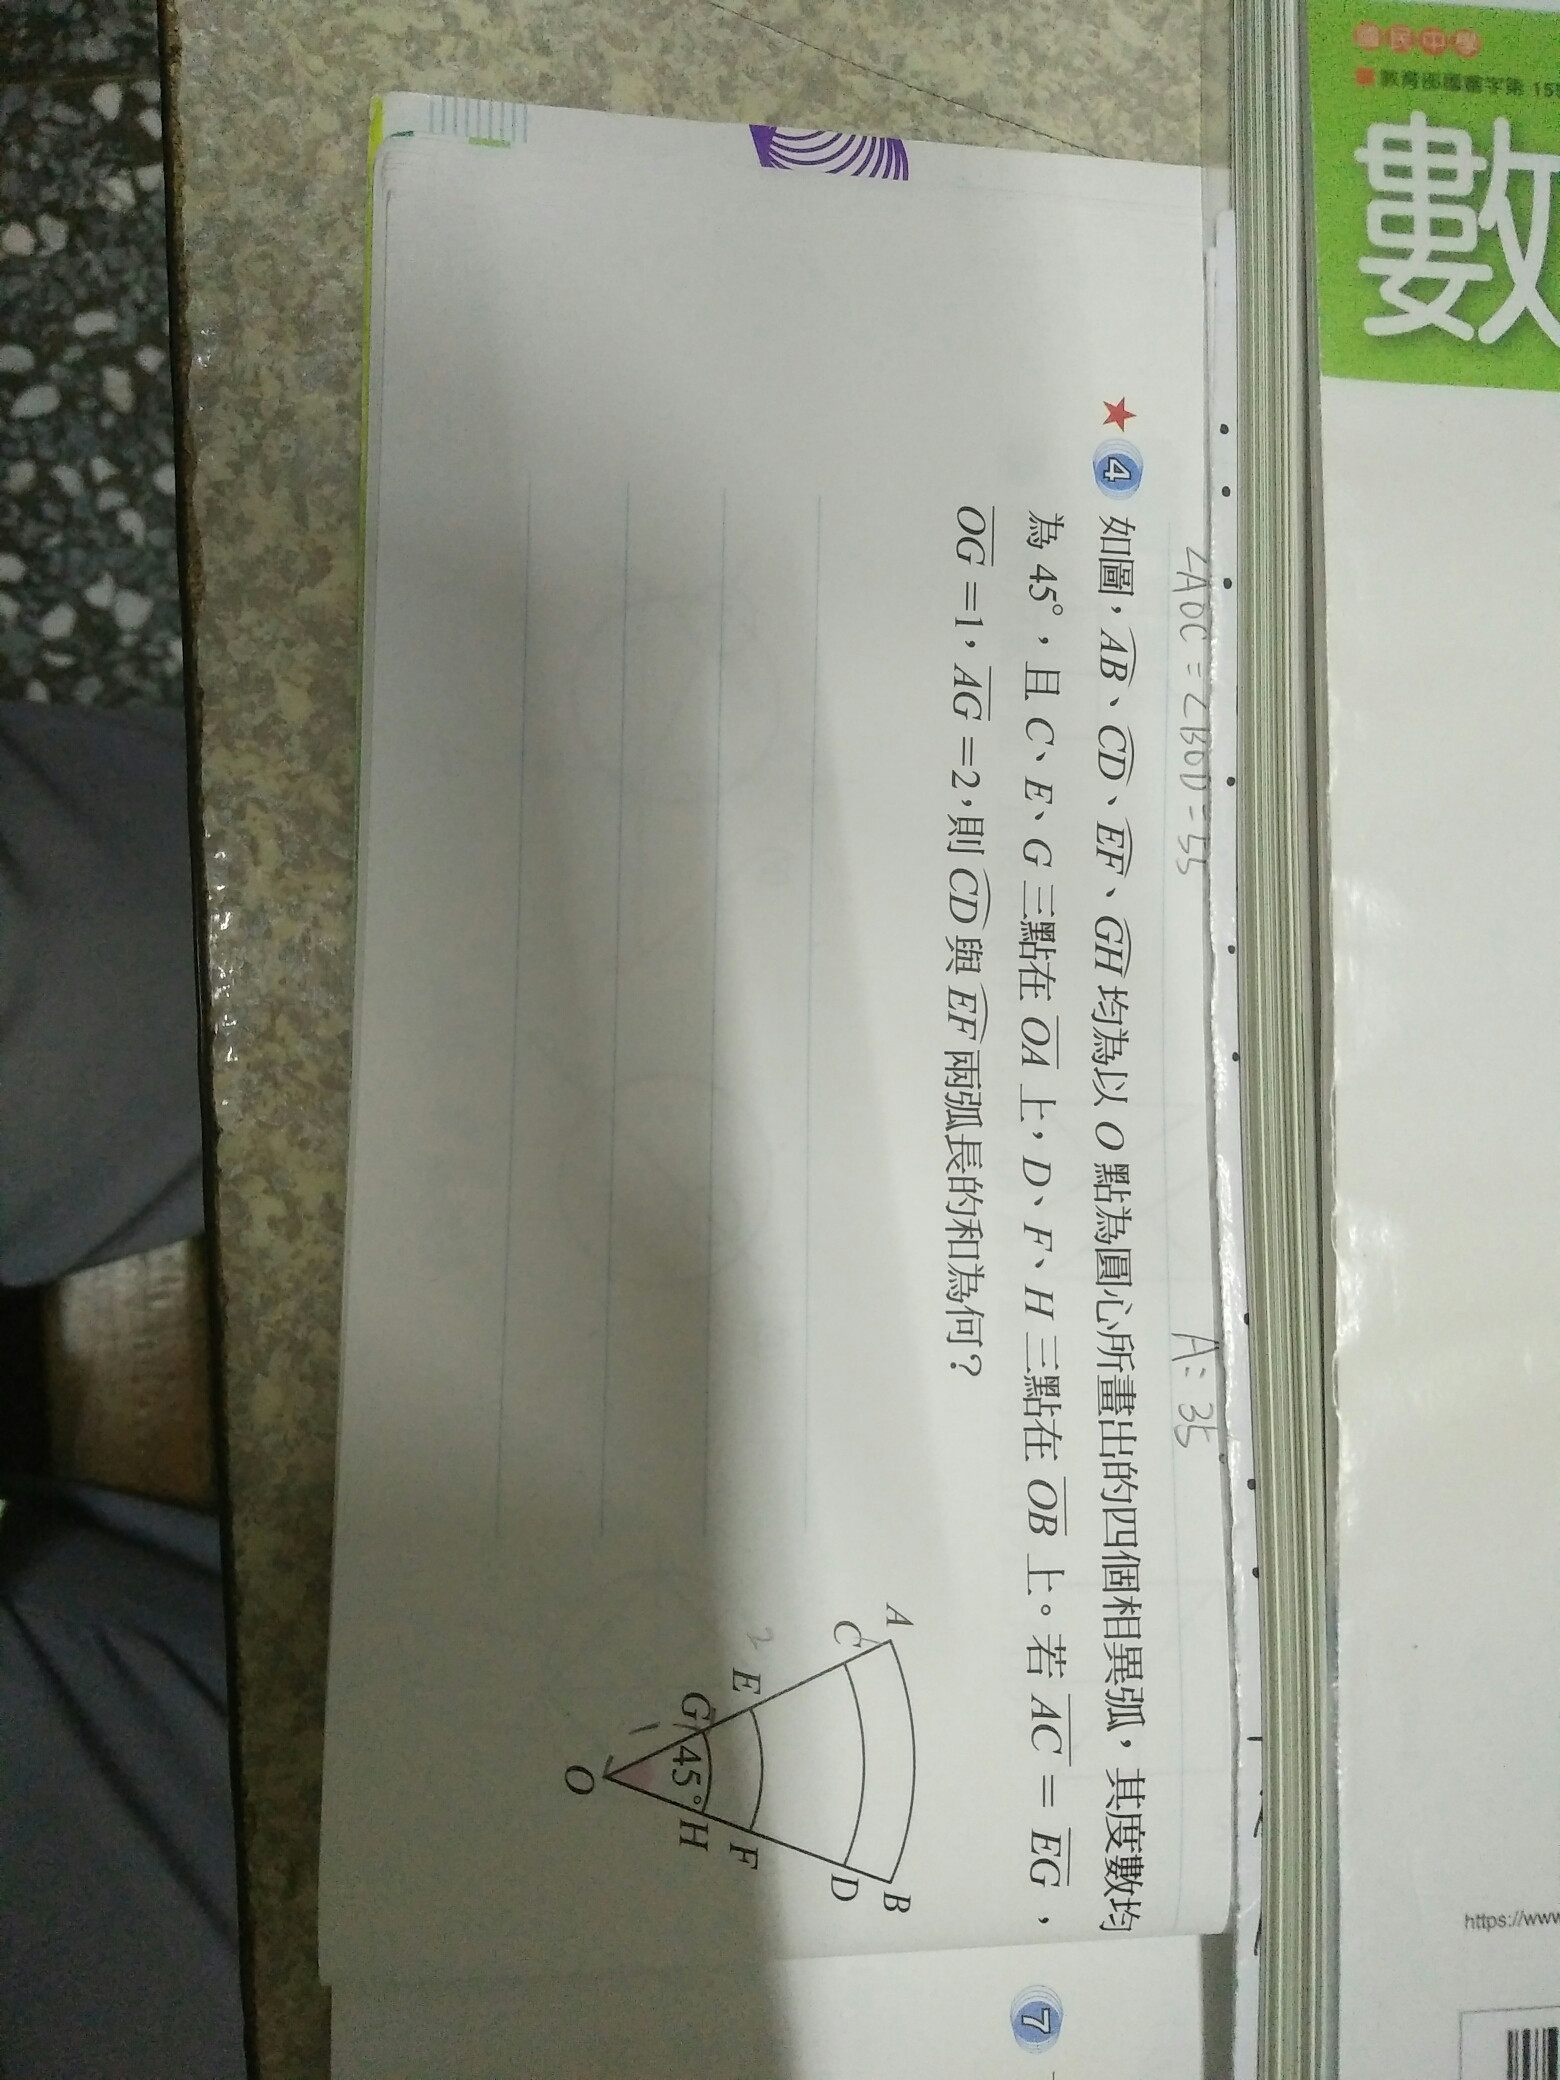 國民中學
數
∠AOC=∠BOD=55
A:35
★ 4 如圖，AB、CD、EF、GH 均為以 O 點為圓心所畫出的四個相異弧，其度數均
為 45°，且 C、E、G 三點在 OA 上，D、F、H 三點在 OB 上。若 AC = EG，
OG =1，AG =2，則 CD 與 EF 兩弧長的和為何？
A
C
2 E
G
1
45°
O
H
F
D
B
7
https://www